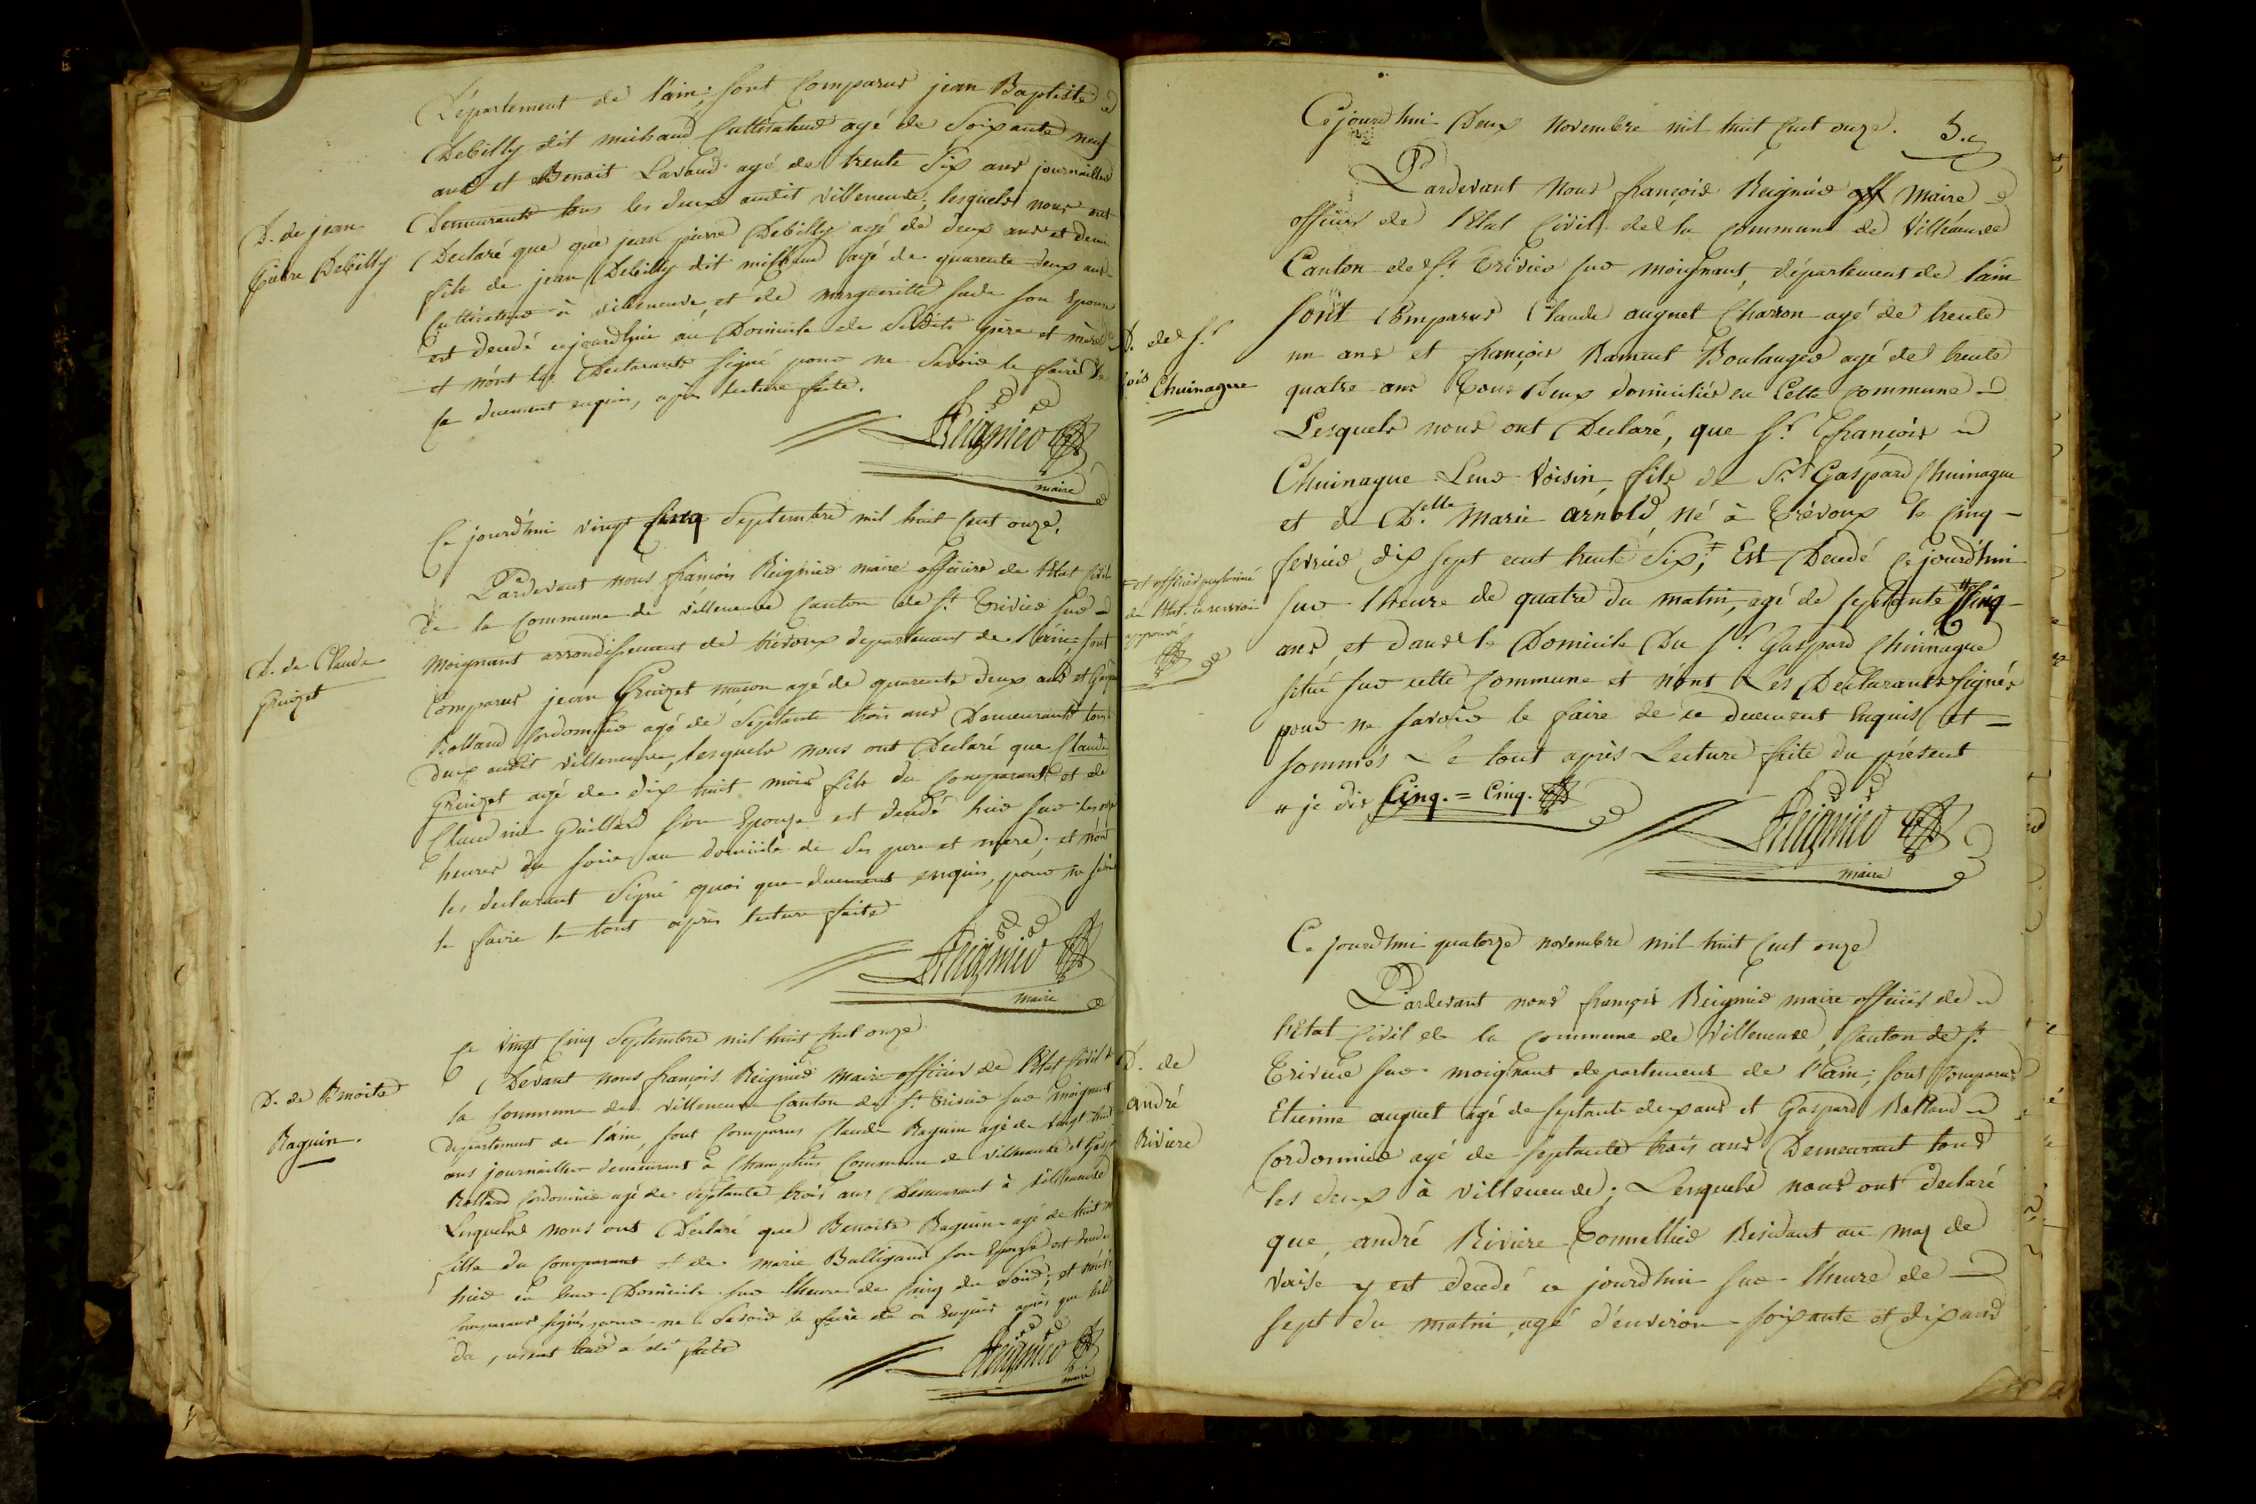 Département de l'ain; sont Comparus jean Baptiste
Debilly dit michaud Cultivateur agé de Soixante neuf
ans et Benoit Lavaud agé de trente Six ans journaillier
Demeurants tous les deux audit villeneuve, lesquels nous ont
D. de jean
Pierre Debilly
Declaré que que jean pierre Debilly agé de deux ans et demi
fils de jean Debilly dit michaud agé de quarente deux ans
Cultivateur à villeneuve, et de margueritte son Epouse
est decedé cejourdhui au Domicile de Sesdits père et mère
et n'ont les Declarants signé pour ne Savoir le faire de
ce duement enquis, après lecture faite.
Reignier
maire
Ce jourd'hui vingt Cinq Septembre mil huit Cent onze.
Pardevant nous françois Reignier maire officier de l'Etat Civil
de la Commune de villeneuve Canton de St. Trivier sur
D. de Claude
Gruizet
moignant arrondissement de trévoux departement de l'ain, sont
Comparus jean Gruizet maçon agé de quarente deux ans et
Rolland Cordonnier agé de Septante trois ans Demeurants tous
deux audit villeneuve, lesquels nous ont Declaré que Claude
Gruizet agé de dix huit mois fils du Comparant et de
Claudine Guillard son Epouse est decedé hier sur les
heures du soir au domicile de Ses pere et mere, et n'ont
les declarant Signé quoi que duement enquis, pour ne
le faire le tout après lecture faite
Reignier
maire
Ce vingt Cinq Septembre mil huit Cent onze
D. de Benoite
Raguin.
Devant nous françois Reignier Maire officier de l'Etat Civil de
la Commune de villeneuve Canton de St. Trivier sur moignant
departement de l'ain, sont Comparus Claude Raguin agé de vingt
ans journaillier demeurant à Commune de villeneuve et
Rolland Cordonnier agé de Septante trois ans Demeurant à villeneuve
Lesquels nous ont Declaré que Benoite Raguin agé de huit
fille du Comparant et de marie Balligand son Epouse est decedé
hier en leur Domicile sur l'heure de Cinq du Soir, et
Comparans Signés pour ne Savoir le faire de ce Enquis après que
du présent leur a été faite
Reignier
maire
Cejourdhui Deux Novembre mil huit Cent onze.
Pardevant Nous françois Reignier off Maire
officier de l'Etat Civil de la Commune de Villeneuve
Canton de St. Trivier sur moignant, département de l'ain
sont Comparus Claude auguet Charron agé de trente
D. de Sr.
Chuinague
un ans et françois Ramuet Boulanger agé de trente
quatre ans Tous Deux domiciliés en Cette commune
Lesquels nous ont Declaré, que Sr. françois
Chuinague Leur Voisin, fils de Sr. Gaspard Chuinague
et de Delle Marie arnold, Né à Trévoux le Cinq
fevrier dix sept cent trente Six, Est Decedé ce jourd'hui
sur l'heure de quatre du matin, agé de septante Cinq
approuvé
ans, et dans le Domicile Du Sr. Gaspard Chuinague
situé sur cette Commune et n'ont Les Declarants signés
pour ne savoir le faire de ce duement Enquis et
sommés Le tout après Lecture faite du présent
je dis Cinq. = Cinq.
Reignier
maire
Ce jourd'hui quatorze novembre mil huit Cent onze
Pardevant nous françois Reignier maire officier de
l'Etat Civil de la Commune de Villeneuve, Canton de St.
D. de
andré
Riviere
Trivier sur moignant departement de l'ain; sont Comparus
Etienne auguet agé de septante deux ans et Gaspard Rolland
Cordonnier agé de septante trois ans Demeurant tous
les deux à villeneuve; Lesquels nous ont declaré
que, andré Riviere Tonnellier Residant au maz de
y est decedé ce jourd'hui sur l'heure de
sept du matin, agé d'environ soixante et dix ans